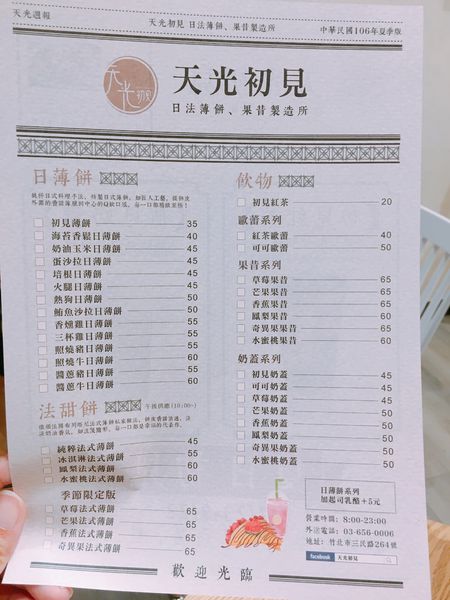 天光週報
天光初見 日法薄餅、果昔製造所
中華民國106年夏季版
天光初見
天光初見
日法薄餅、果昔製造所
日薄餅
初見薄餅 35
海苔香鬆日薄餅 40
奶油玉米日薄餅 45
蛋沙拉日薄餅 45
培根日薄餅 45
火腿日薄餅 45
熱狗日薄餅 50
鮪魚沙拉日薄餅 50
香燻雞日薄餅 55
三杯雞日薄餅 55
照燒豬日薄餅 55
照燒牛日薄餅 60
醬蔥豬日薄餅 55
醬蔥牛日薄餅 60
法甜餅 午後供應(10:00~)
純粹法式薄餅 45
冰淇淋法式薄餅 55
鳳梨法式薄餅 60
水蜜桃法式薄餅 60
季節限定版
草莓法式薄餅 65
芒果法式薄餅 65
香蕉法式薄餅 65
奇異果法式薄餅 65
飲物
初見紅茶 20
歐蕾系列
紅茶歐蕾 40
可可歐蕾 50
果昔系列
草莓果昔 65
芒果果昔 65
香蕉果昔 65
鳳梨果昔 65
奇異果果昔 65
水蜜桃果昔 65
奶蓋系列
初見奶蓋 45
可可奶蓋 45
草莓奶蓋 45
芒果奶蓋 50
香蕉奶蓋 50
鳳梨奶蓋 50
奇異果奶蓋 50
水蜜桃奶蓋 50
日薄餅系列
加起司乳酪+5元
營業時間: 8:00-23:00
外送電話: 03-656-0006
地址: 竹北市三民路264號
facebook 天光初見
歡迎光臨